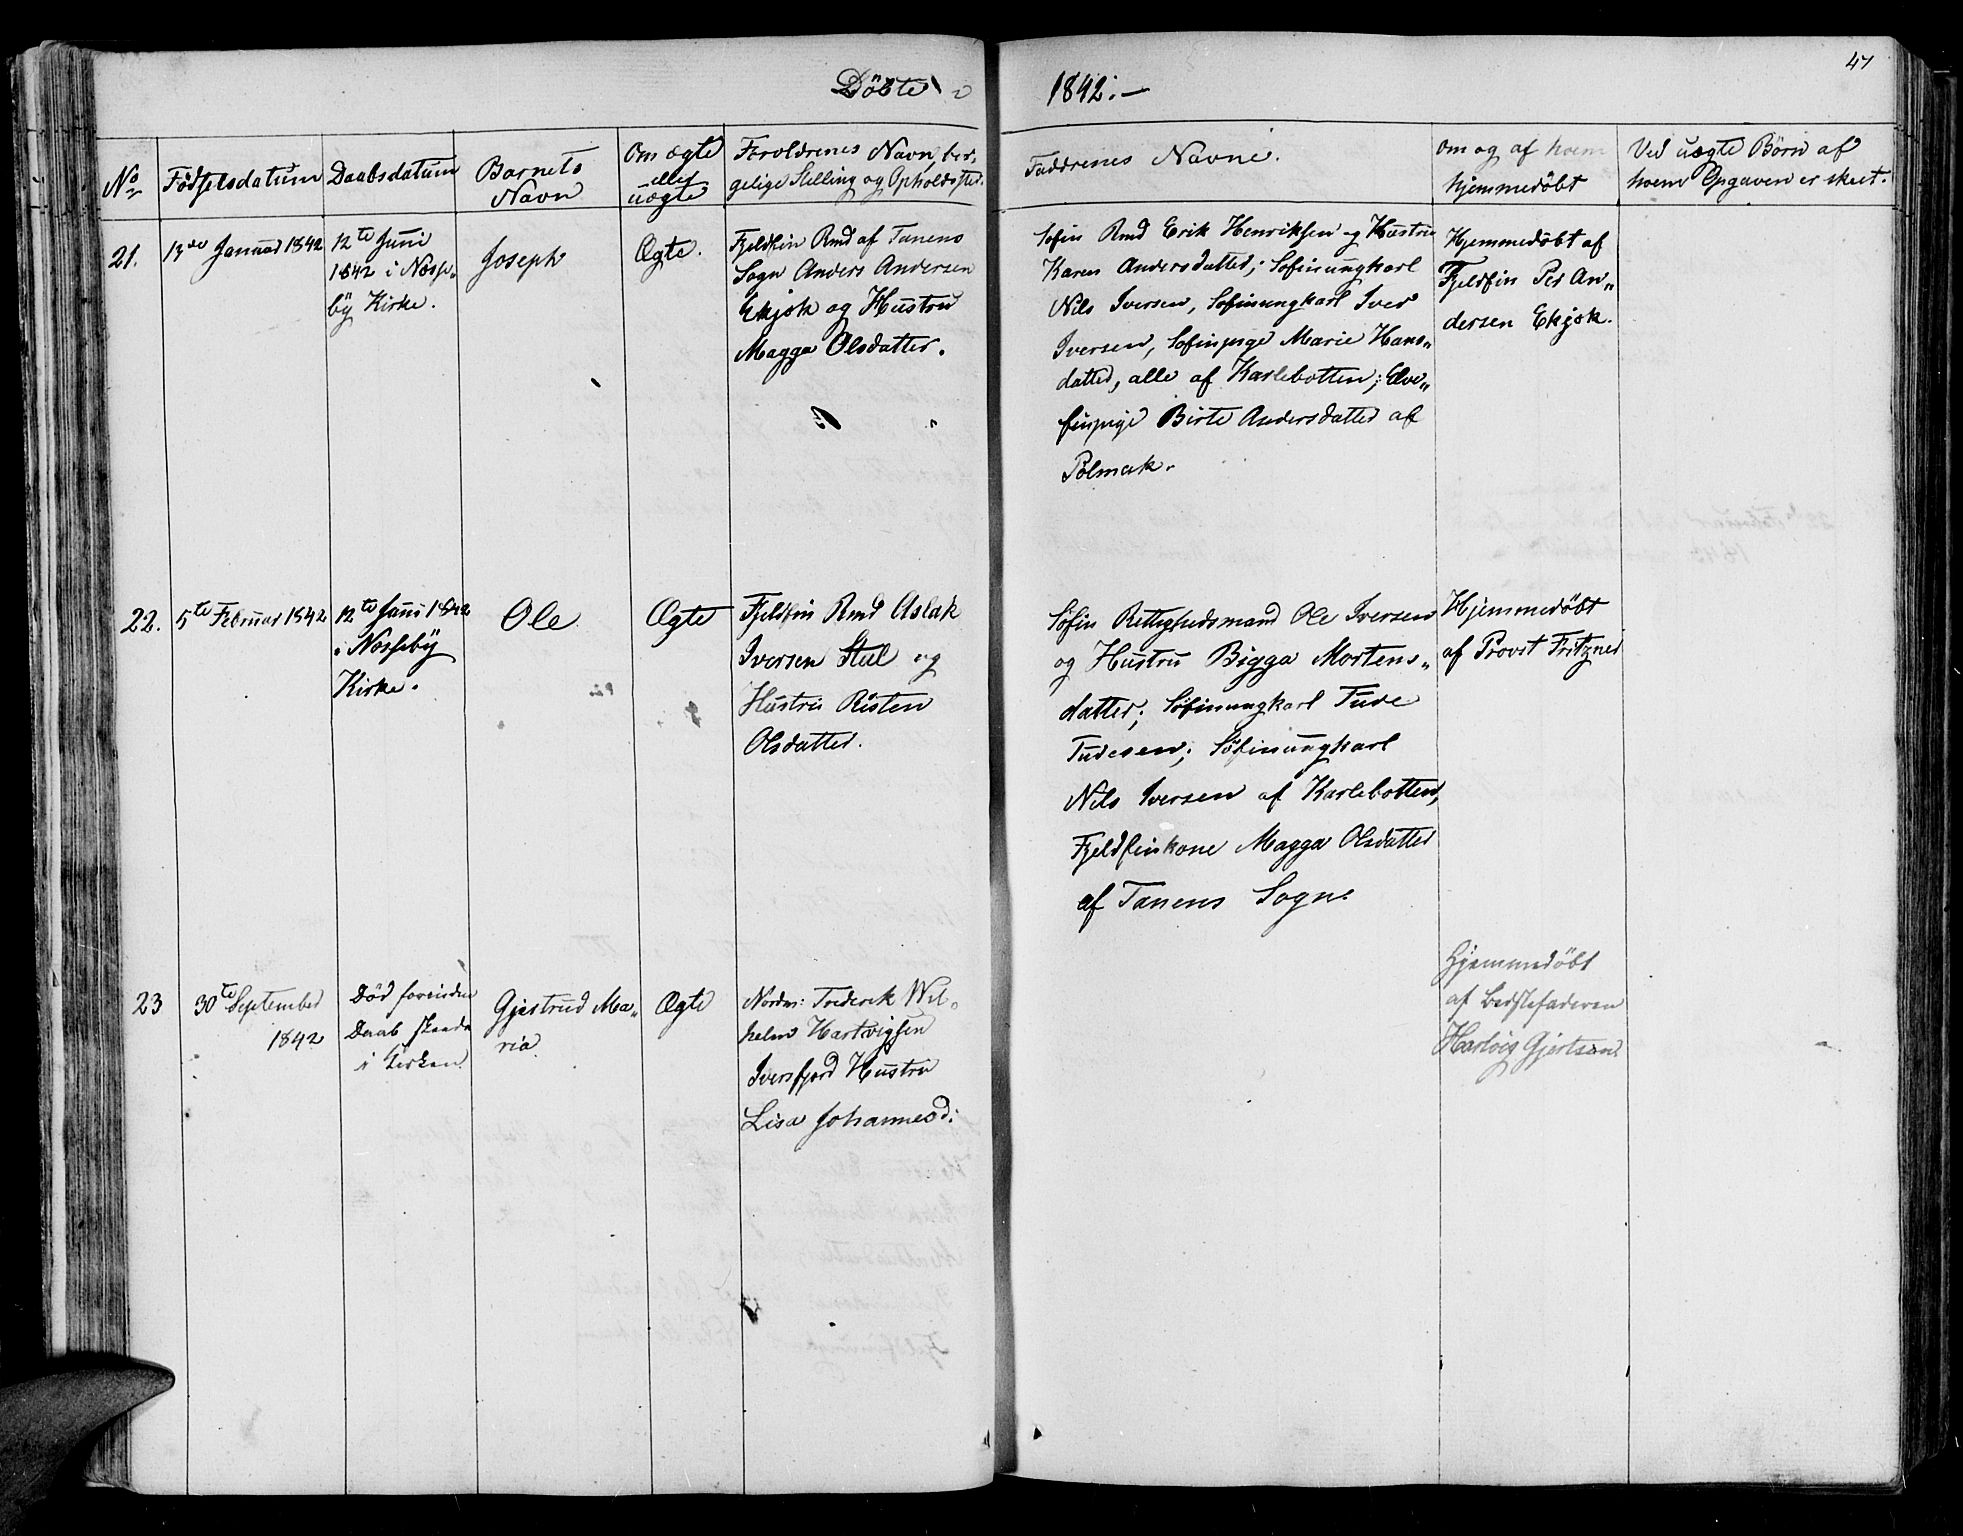 Döbte i 1842.-
47
No
Födselsdatum
Daabsdatum
Barnets
Navn
Om ægte
eller
uægte
Forældrenes Navn, bor„
gelige Stilling og Opholdssted.
Faddrenes Navne.
om og af hvem
hjemmedöbt
Ved uægte Börn af
hvem Opgaven er skeet.
21.
13de Januar 1842
12te Juni
1842 i Næsse„
by Kirke.
Joseph
Ægte.
Fjeldfin Rmd af Tanens
Sogn Anders Andersen
Ekjok og Hustru
Magga Olsdatter.
Söfin Rmd Erik Henriksen og Hustru
Karen Andersdatter; Söfinungkarl
Nils Iversen, Söfinungkarl Iver
Iversen, Söfinpige Marie Hans„
datter, alle af Karlebotten; Elve„
finpige Birte Andersdatter af
Polmak.
Hjemmedöbt af
Fjeldfin Per An„
dersen Ekjok.
22.
5te Februar 1842
12te Juni 1842
i Næsseby
Kirke.
Ole
Ægte
Fjeldfin Rmd Aslak
Iversen Stul og
Hustru Risten
Olsdatter.
Söfin Rettighedsmand Ole Iversen
og Hustru Bigga Mortens„
datter; Söfinungkarl Tude
Tudesen; Söfinungkarl
Nils Iversen af Karlebotten,
Fjeldfinkone Magga Olsdatter
af Tanens Sogn.
Hjemmedöbt
af Provst Fritzner
23
30te September
1842
Död forinden
Daab skeede
i Kirken.
Gjertrud Ma„
ria.
Ægte
Nordm: Frederik Wil„
helm Hartvigsen
Iversfjord Hustru
Lisa Johannesd:
Hjemmedöbt
af Bedstefaderen
Hartvig Gjertsen.